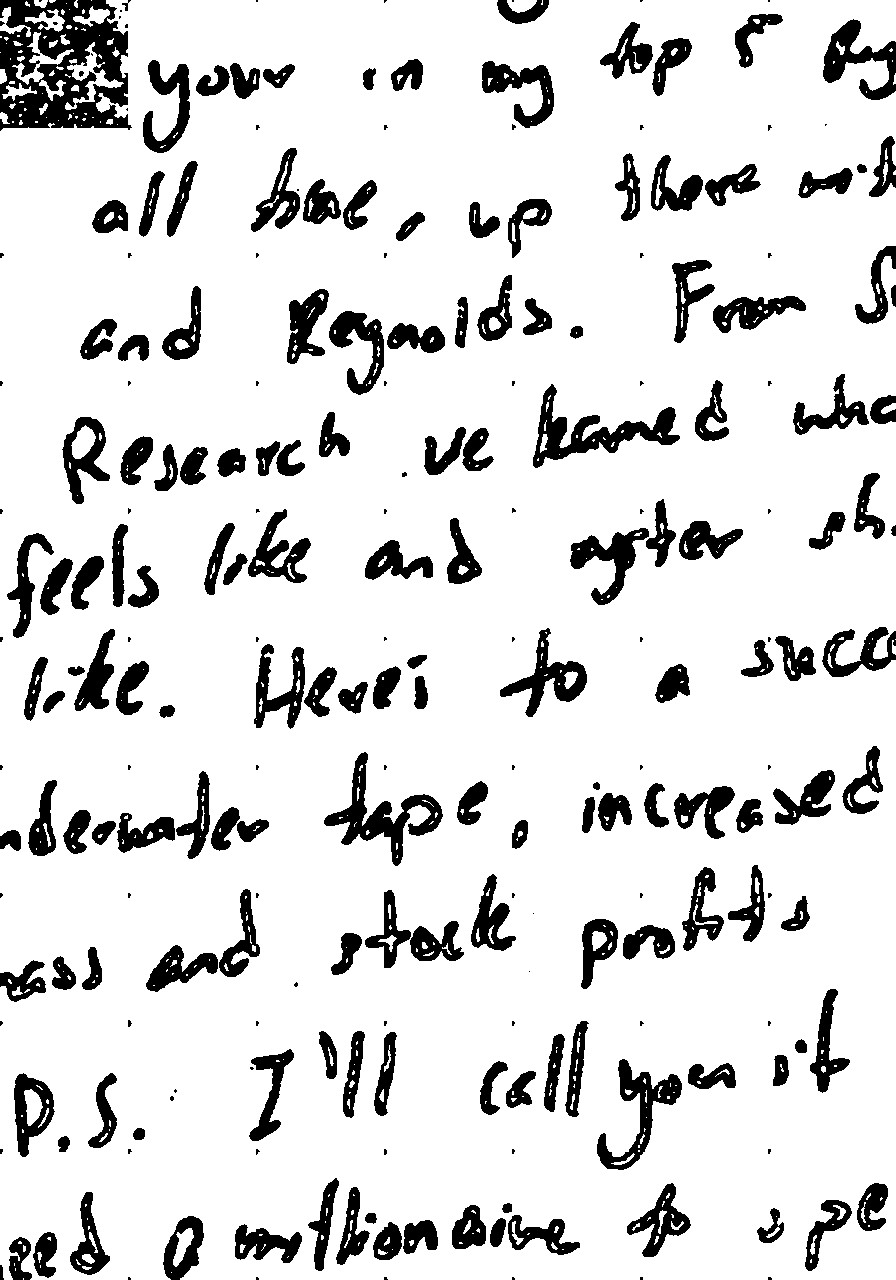 your in my top 5
all time, up there with
and Reynolds. From
Research ve learned
feels like and after
like. Here's to a
underwater tape, increased
mass and stock profits
P.S. I'll call you it
need a millionaire to